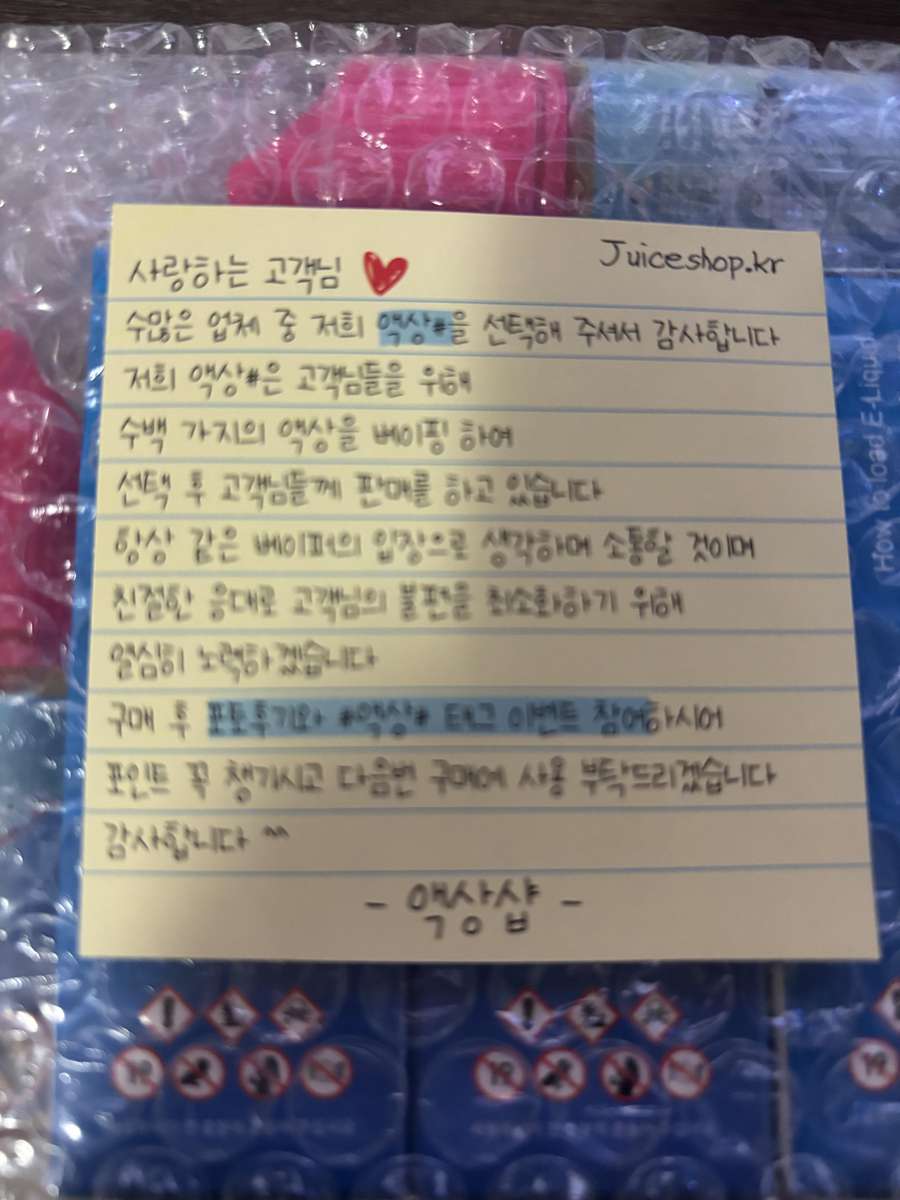 Juiceshop.kr
사랑하는 고객님
수많은 업체 중 저희 액상#을 선택해 주셔서 감사합니다
저희 액상#은 고객님들을 위해
수백 가지의 액상을 베이핑 하여
선택 후 고객님들께 판매를 하고 있습니다
항상 같은 베이퍼의 입장으로 생각하며 소통할 것이며
친절한 응대로 고객님의 불편을 최소화하기 위해
열심히 노력하겠습니다
구매 후 포토후기와 #액상# 태그 이벤트 참여하시어
포인트 꼭 챙기시고 다음번 구매에 사용 부탁드리겠습니다
감사합니다 ^^
- 액상샵 -
How to load E-Liquid
19
19
19